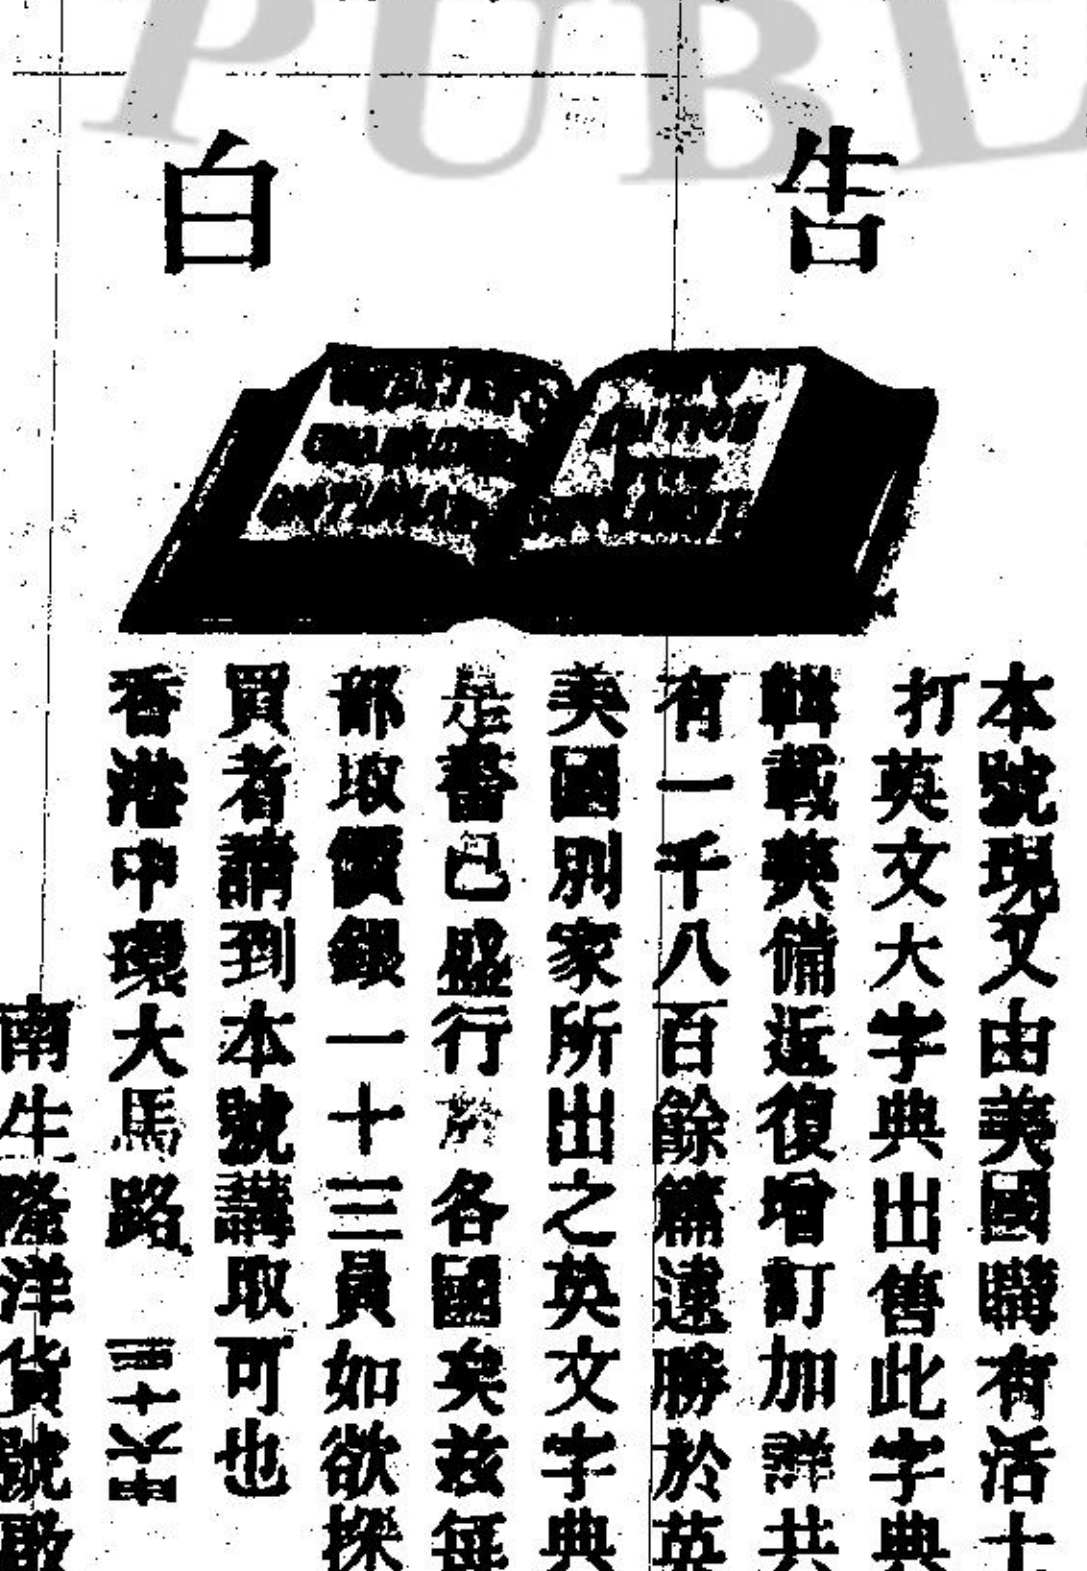 PUBL
告白
WEBSTER'S
UNABRIDGED
DICTIONARY
EDITION
WITH
SUPPLEMENT
本號現又由美國購有活士
打英文大字典出售此字典
輯載英備近復增訂加詳共
有一千八百餘篇遠勝於英
美國別家所出之英文字典
是書已盛行於各國矣茲每
部取價銀一十三員如欲採
買者請到本號講取可也
香港中環大馬路
南生隆洋貨號啟